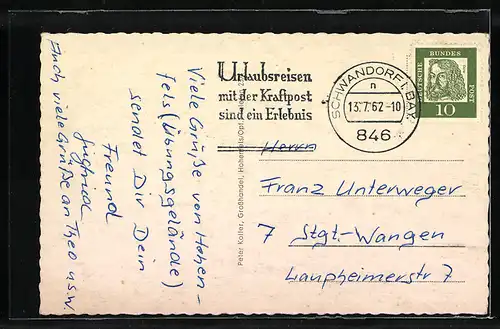 Viele Grüße von Hohen-
fels (Übungsgelände)
sendet Dir Dein
Freund
Jugfried
Auch viele Grüße an Theo usw.
Peter Koller, Großhandel, Hohenfels/Opf.
Urlaubsreisen
mit der Kraftpost
sind ein Erlebnis
SCHWANDORF i. BAY.
n
13.7.62-10
846
DEUTSCHE BUNDESPOST
10
Herrn
Franz Unterweger
7 Stgt-Wangen
Laupheimerstr 7